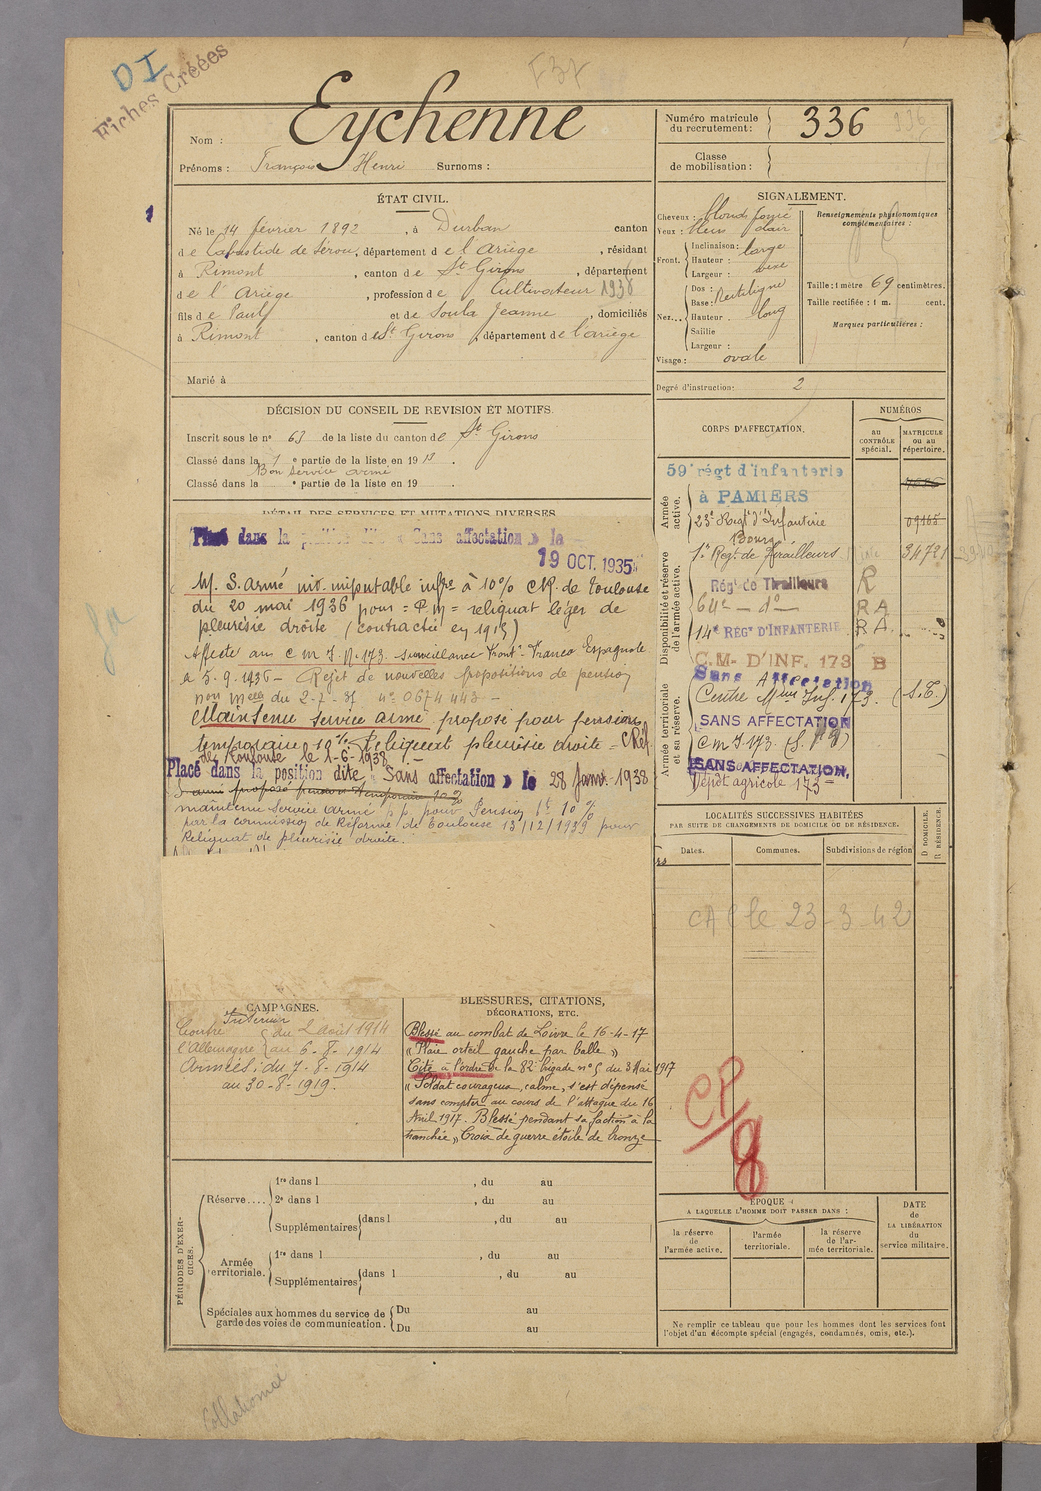 DI
Fiches Créées
Eychenne
Nom :
Prénoms : François Henri Surnoms :
Numéro matricule du recrutement : 336
Classe de mobilisation :
ÉTAT CIVIL.
Né le 14 février 1892, à Durban canton
de Labastide de Sérou, département de l'Ariège, résidant
à Rimont, canton de St Girons, département
de l'Ariège, profession de Cultivateur 1938
fils de Paul et de Soula Jeanne, domiciliés
à Rimont, canton de St Girons, département de l'ariège
Marié à
SIGNALEMENT.
Cheveux : blonds foncé
Yeux : bleus clair
Front. Inclinaison : large
Hauteur :
Largeur :
Nez... Dos : Rectiligne
Base :
Hauteur : long
Saillie
Largeur :
Visage : ovale
Renseignements physionomiques complémentaires :
Taille : 1 mètre 69 centimètres.
Taille rectifiée : 1 m. cent.
Marques particulières :
Degré d'instruction : 2
DÉCISION DU CONSEIL DE REVISION ET MOTIFS.
Inscrit sous le n° 63 de la liste du canton de St Girons
Classé dans la 1e partie de la liste en 1913.
Bon service armé
Classé dans la e partie de la liste en 19 .
DÉTAIL DES SERVICES ET MUTATIONS DIVERSES
Placé dans la position dite « Sans affectation » le
19 OCT. 1935
M. S. armé inv. imputable infre à 10% CR. de Toulouse
du 20 mai 1936 pour = P.m = reliquat léger de
pleurésie droite (contractée en 1915)
Affecté au C M I. N. 173. Surveillance Front. Franco Espagnole
5.9.1936 - Rejet de nouvelles propositions de pension
du 2-7-37 n° 0674443 -
Maintenu service armé proposé pour pension
temporaire 10% Reliquat pleurésie droite - C Réf.
de Toulouse le 1-6-1938 -
Placé dans la position dite « Sans affectation » le 28 Janv. 1938
armé proposé pension temporaire 10%
maintenu Service armé pp pour Pension 10%
par la commission de Réforme de Toulouse 13/12/1939 pour
Reliquat de pleurésie droite.
CORPS D'AFFECTATION.
NUMÉROS
AU CONTRÔLE spécial.
MATRICULE ou au répertoire.
Armée active.
59e régt d'infanterie
à PAMIERS
23e Regt d'Infanterie 09165
Bourg
Disponibilité et réserve de l'armée active.
1er Regt de Tirailleurs 34721
Régt de Tirailleurs R
64e - do - RA
14e RÉGt D'INFANTERIE RA
C.M. D'INF. 173 B
Sans Affectation
Armée territoriale et sa réserve.
Centre Mme Inf. 173. (S.F.)
SANS AFFECTATION
C m I 173.
SANS AFFECTATION,
Dépôt agricole 173
LOCALITÉS SUCCESSIVES HABITÉES
PAR SUITE DE CHANGEMENTS DE DOMICILE OU DE RÉSIDENCE.
D DOMICILE.
R RÉSIDENCE.
Dates. Communes. Subdivisions de région
le 23-3-42
CAMPAGNES.
Intérieur
Contre l'Allemagne du 2 août 1914
au 6-8-1914
Armées : du 7-8-1914
au 30-8-1919.
BLESSURES, CITATIONS,
DÉCORATIONS, ETC.
Blessé au combat de Loivre le 16-4-17
« Plaie orteil gauche par balle »
Cité à l'ordre de la 82e brigade n° 5 du 3 Mai 1917
« Soldat courageux, calme, s'est dépensé
sans compter au cours de l'attaque du 16
Avril 1917. Blessé pendant sa faction à la
tranchée » Croix de guerre étoile de bronze
CP/8
PÉRIODES D'EXERCICES.
Réserve....
1re dans l , du au
2e dans l , du au
Supplémentaires dans l , du au
Armée territoriale.
1re dans l , du au
Supplémentaires dans l , du au
Spéciales aux hommes du service de garde des voies de communication.
Du au
Du au
ÉPOQUE
A LAQUELLE L'HOMME DOIT PASSER DANS :
la réserve de l'armée active.
l'armée territoriale.
la réserve de l'armée territoriale.
DATE de LA LIBÉRATION du service militaire.
Ne remplir ce tableau que pour les hommes dont les services font
l'objet d'un décompte spécial (engagés, condamnés, omis, etc.).
Collationné